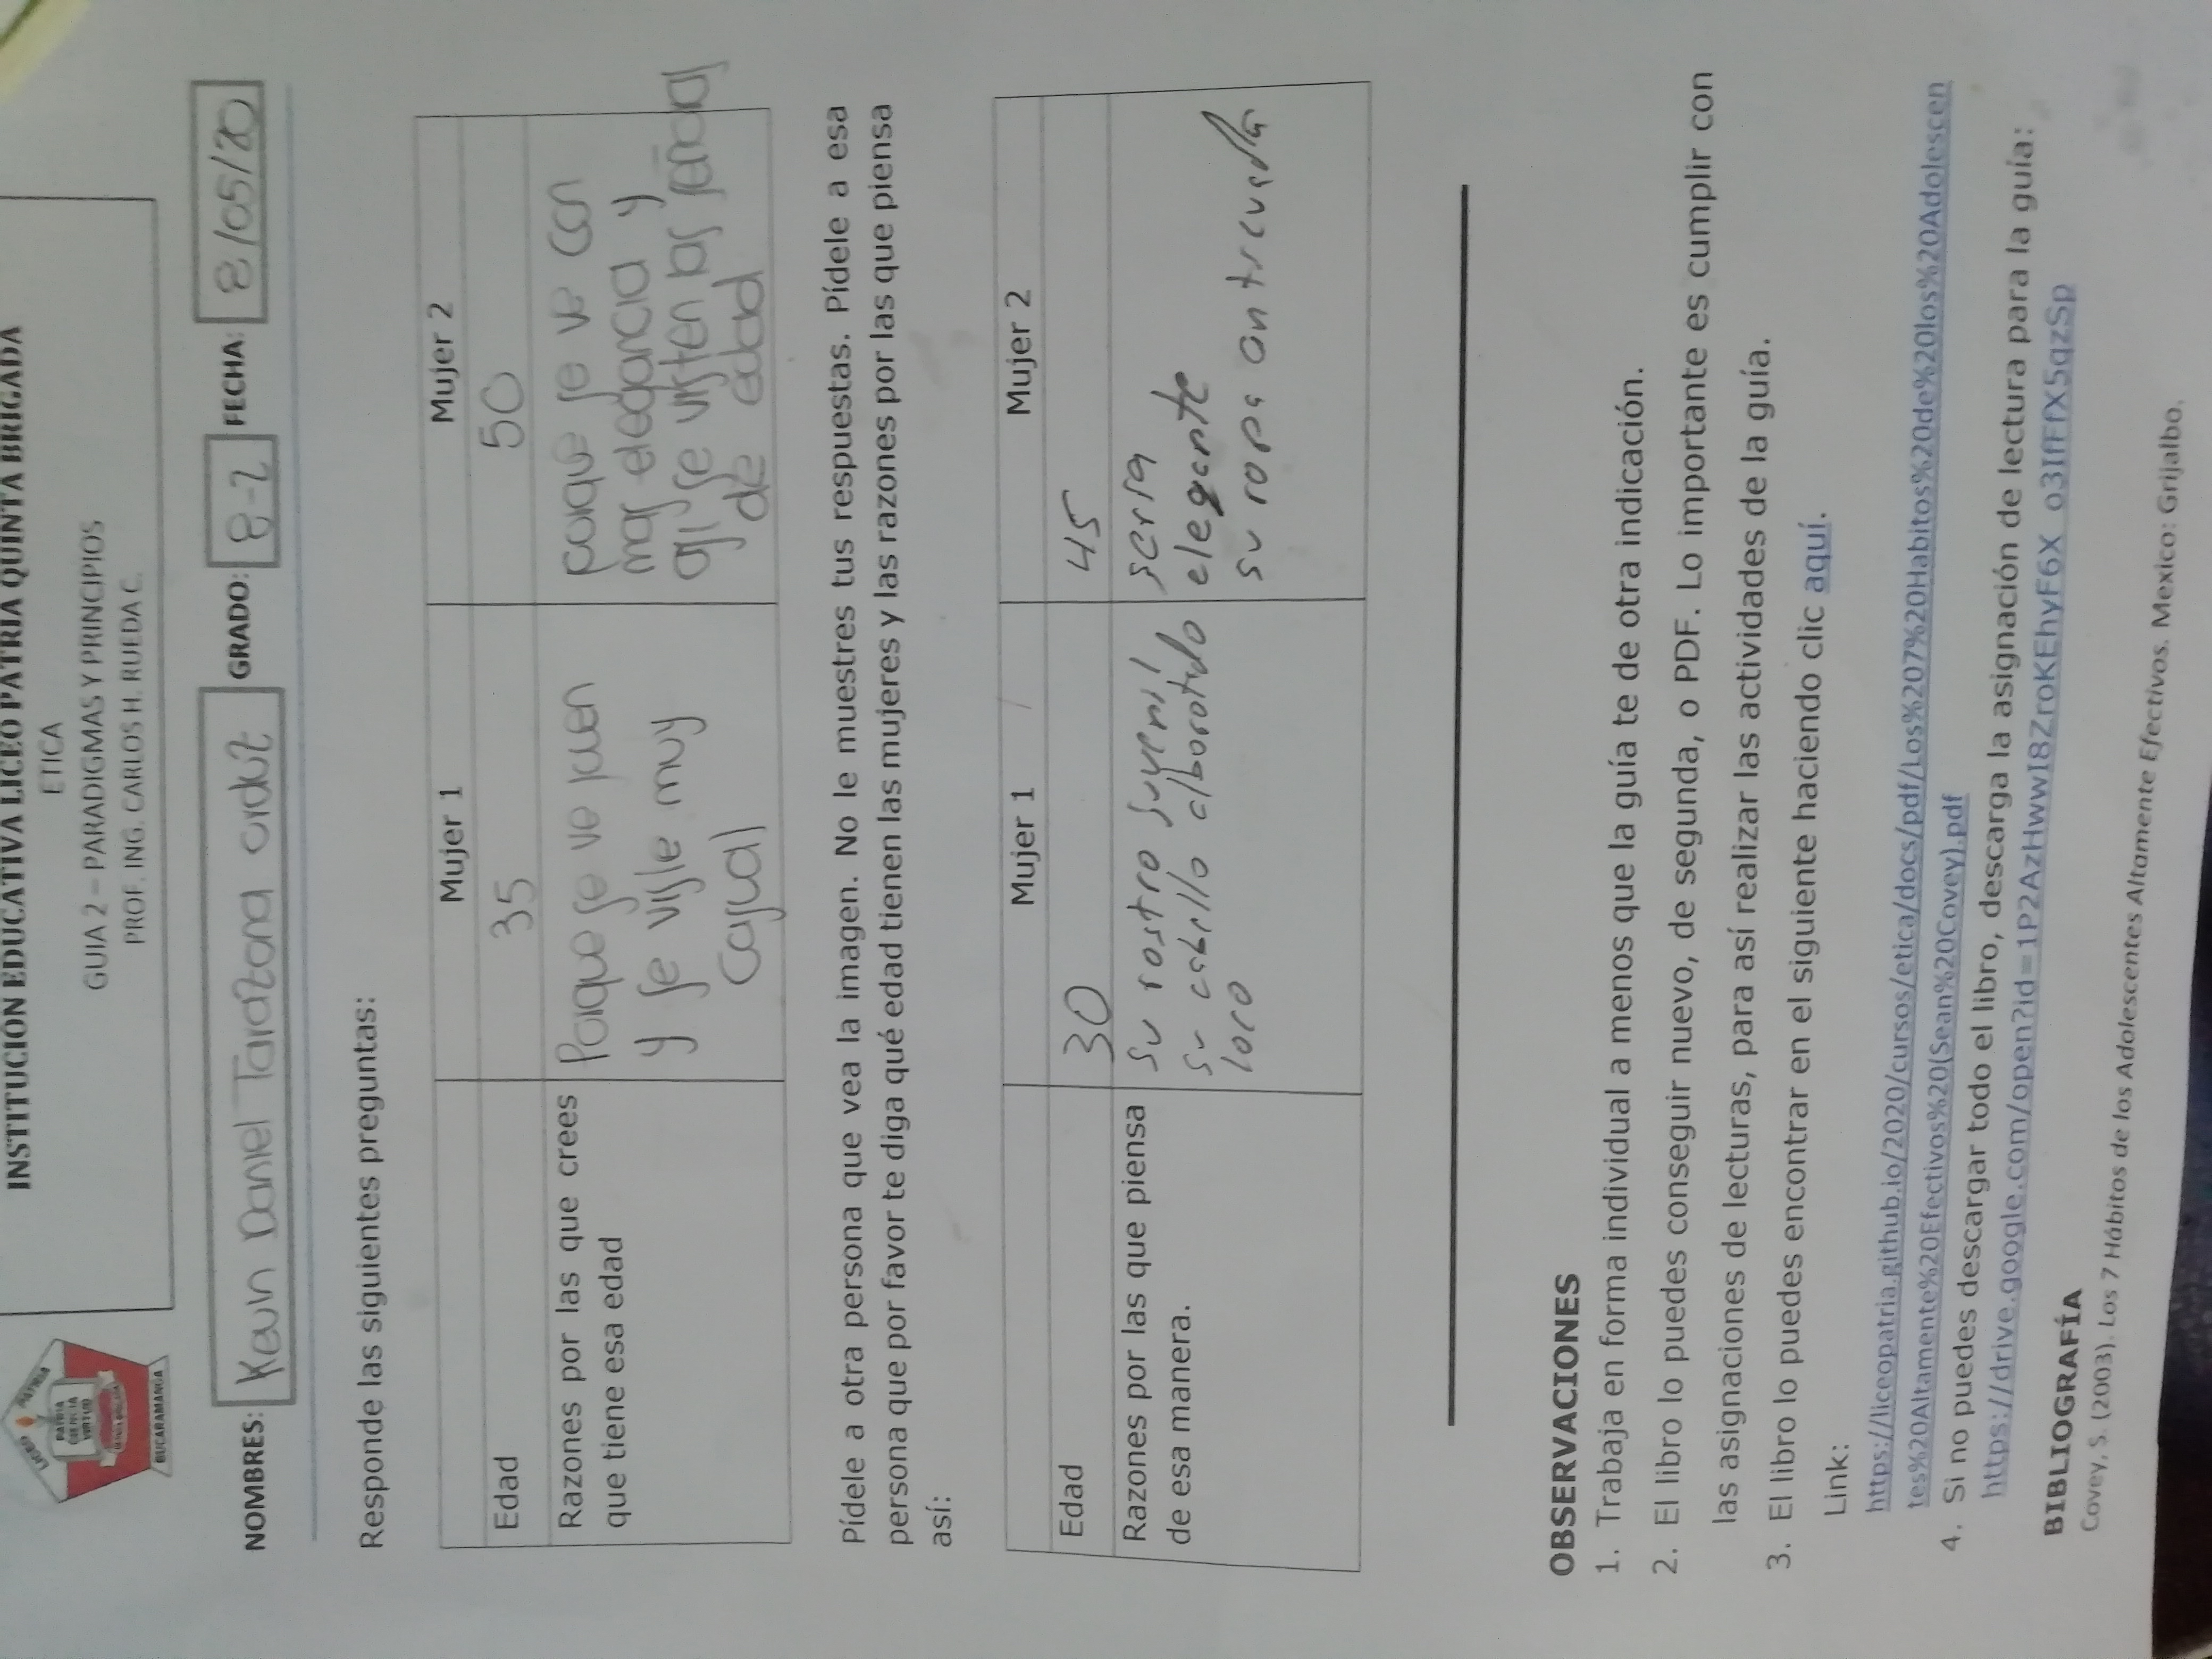 INSTITUCIÓN EDUCATIVA LICEO PATRIA QUINTA BRIGADA
ETICA
GUIA 2 – PARADIGMAS Y PRINCIPIOS
PROF. ING. CARLOS H. RUEDA C.
LICEO PATRIA
PATRIA
CIENCIA
VIRTUD
BUCARAMANGA
NOMBRES: Kevin Daniel Tarazona GRADO: 8-2 FECHA: 8/05/20
Responde las siguientes preguntas:
Mujer 1 Mujer 2
Edad 35 50
Razones por las que crees
que tiene esa edad
Porque se ve juen
y se viste muy
casual
porque se ve con
mas elegancia y
asi se visten las señoras
de edad
Pídele a otra persona que vea la imagen. No le muestres tus respuestas. Pídele a esa
persona que por favor te diga qué edad tienen las mujeres y las razones por las que piensa
así:
Mujer 1 Mujer 2
Edad 30 45
Razones por las que piensa
de esa manera.
su rostro juvenil
su cabello alborotado
loro
seria
elegante
su ropa anticuada
OBSERVACIONES
1. Trabaja en forma individual a menos que la guía te de otra indicación.
2. El libro lo puedes conseguir nuevo, de segunda, o PDF. Lo importante es cumplir con
las asignaciones de lecturas, para así realizar las actividades de la guía.
3. El libro lo puedes encontrar en el siguiente haciendo clic aquí.
Link:
https://liceopatria.github.io/2020/cursos/etica/docs/pdf/Los%207%20Habitos%20de%20los%20Adolescen
tes%20Altamente%20Efectivos%20(Sean%20Covey).pdf
4. Si no puedes descargar todo el libro, descarga la asignación de lectura para la guía:
https://drive.google.com/open?id=1P2AzHwwI8ZroKEhyF6X_o3IfFfX5qzSp
BIBLIOGRAFÍA
Covey, S. (2003). Los 7 Hábitos de los Adolescentes Altamente Efectivos. Mexico: Grijalbo.